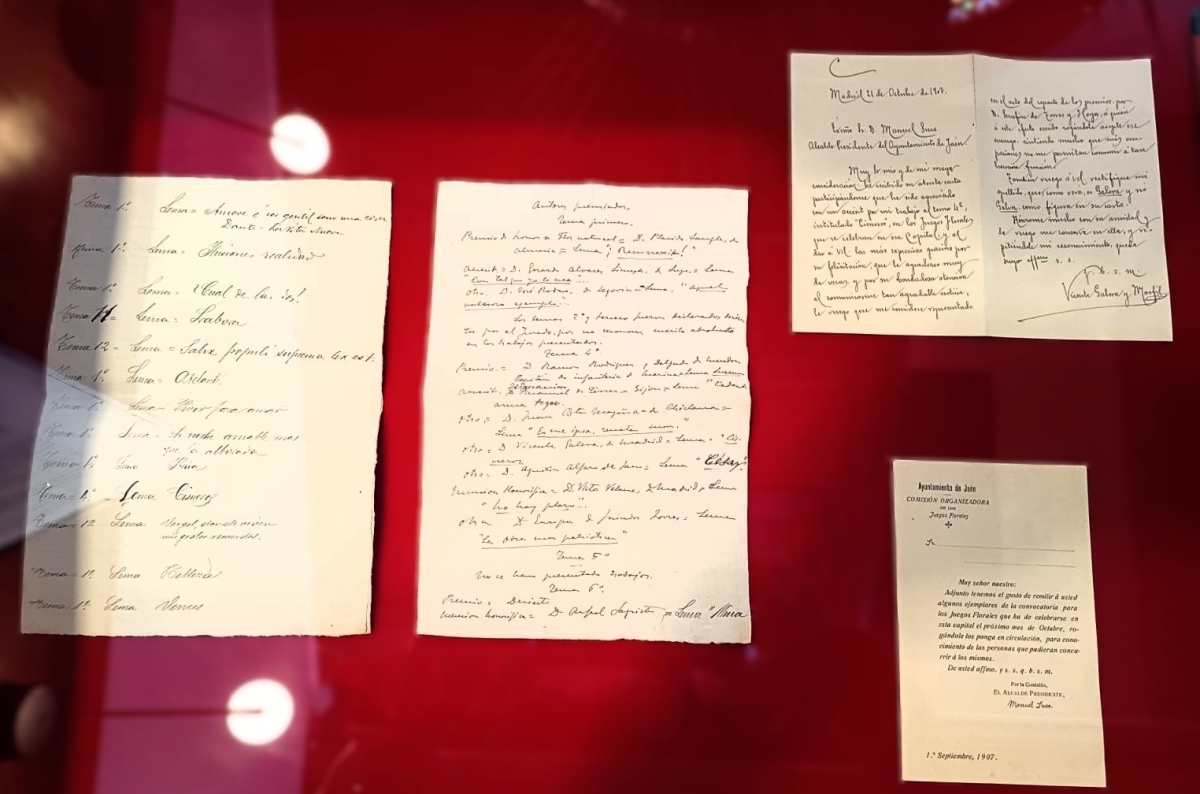 Tema 1º. Lema = Amore è cor gentil sono una cosa
Dante - La Vita Nuova
Tema 1º. Lema = Ilusiones realidad
Tema 1º Lema = ¿Cual de las
Tema 11 = Lema = Laborar
Tema 12 = Lema = Salus populi suprema lex est.
Tema 1º Lema = Adelante
Tema 1º Lema = Vivir para amar
Tema 1º Lema
por la alborada
Tema 1º Lema
Tema = 4º Lema Cisneros
Tema = 12 Lema Vergel, donde viven
mis gratos recuerdos.
Tema = 1º Lema
Tema = 1º Lema Venus
Autores premiados.
Tema primero.
Premio de honor = Flor natural = D. Placido Langle, de
Almeria = Lema;
accesit = D. Gerardo Alvarez Limeses, de Lugo = Lema
otro. D. José Rodao, de Segovia = Lema. "Aquel
valeroso ejemplo"
Los temas 2º y tercero fueron declarados desier
tos por el Jurado, por no reconocer merito absoluto
en los trabajos presentados.
Tema 4º
Premio = D. Ramon Rodriguez y Delgado de Mendoza
Capitán de infantería de marina = Lema
accesit. D. Manuel de Torres = Gijon = Lema "Cedant
arma togae.
otro = D. Juan Bta
Lema "
otro = D. Vicente Galera, de Madrid = Lema = "Cis
neros
otro = D. Agustin Alfaro de Jaen = Lema
Mencion Honorifica = D. Victor Velasco, de Madrid = Lema
"No hay plazo...
otra D. Enrique de = Lema
"La obra mas patriotica"
Tema 5º
No se han presentado trabajos.
Tema 6º.
Premio = Desierto
mencion honorifica = D. Rafael = Lema "Mina
Madrid 21 de Octubre de 1907.
Excmo Sr. D. Manuel Suca
Alcalde Presidente del Ayuntamiento de Jaén.
Muy Sr. mio y de mi mayor
consideración: he recibido su atenta carta
participándome que he sido agraciado
con un accesit por mi trabajo al tema 4º,
intitulado "Cisneros", en los Juegos Florales
que se celebran en esa Capital, y al
dar á Vd. las más expresivas gracias por
su felicitación, que le agradezco muy
de veras, y por su bondadosa atención
al comunicarme tan agradable noticia,
le ruego que me considere representado
en el acto del reparto de los premios, por
D. Serafín de Torres y Hoyo, á quien
á este efecto escribo rogándole acepte ese
encargo, sintiendo mucho que mis ocu-
paciones no me permitan concurrir á tan
hermosa función.
También ruego á Vd. rectifique mi
apellido, que, como verá, es Galera y no
Galva, como figura en su carta.
Hónrome mucho con su amistad y
le ruego me conserve en ella, y re-
pitiéndole mi reconocimiento, queda
suyo affmo s. s.
q. b. s. m.
Vicente Galera y Marfil
Ayuntamiento de Jaén
COMISIÓN ORGANIZADORA
DE LOS
Juegos Florales
Sr.
Muy señor nuestro:
Adjunto tenemos el gusto de remitir á usted
algunos ejemplares de la convocatoria para
los Juegos Florales que ha de celebrarse en
esta capital el próximo mes de Octubre, ro-
gándole los ponga en circulación, para cono-
cimiento de las personas que pudieran concu-
rrir á los mismos.
De usted affmo. y s. s. q. b. s. m.
Por la Comisión,
EL ALCALDE PRESIDENTE,
Manuel Suca.
1.º Septiembre, 1907.